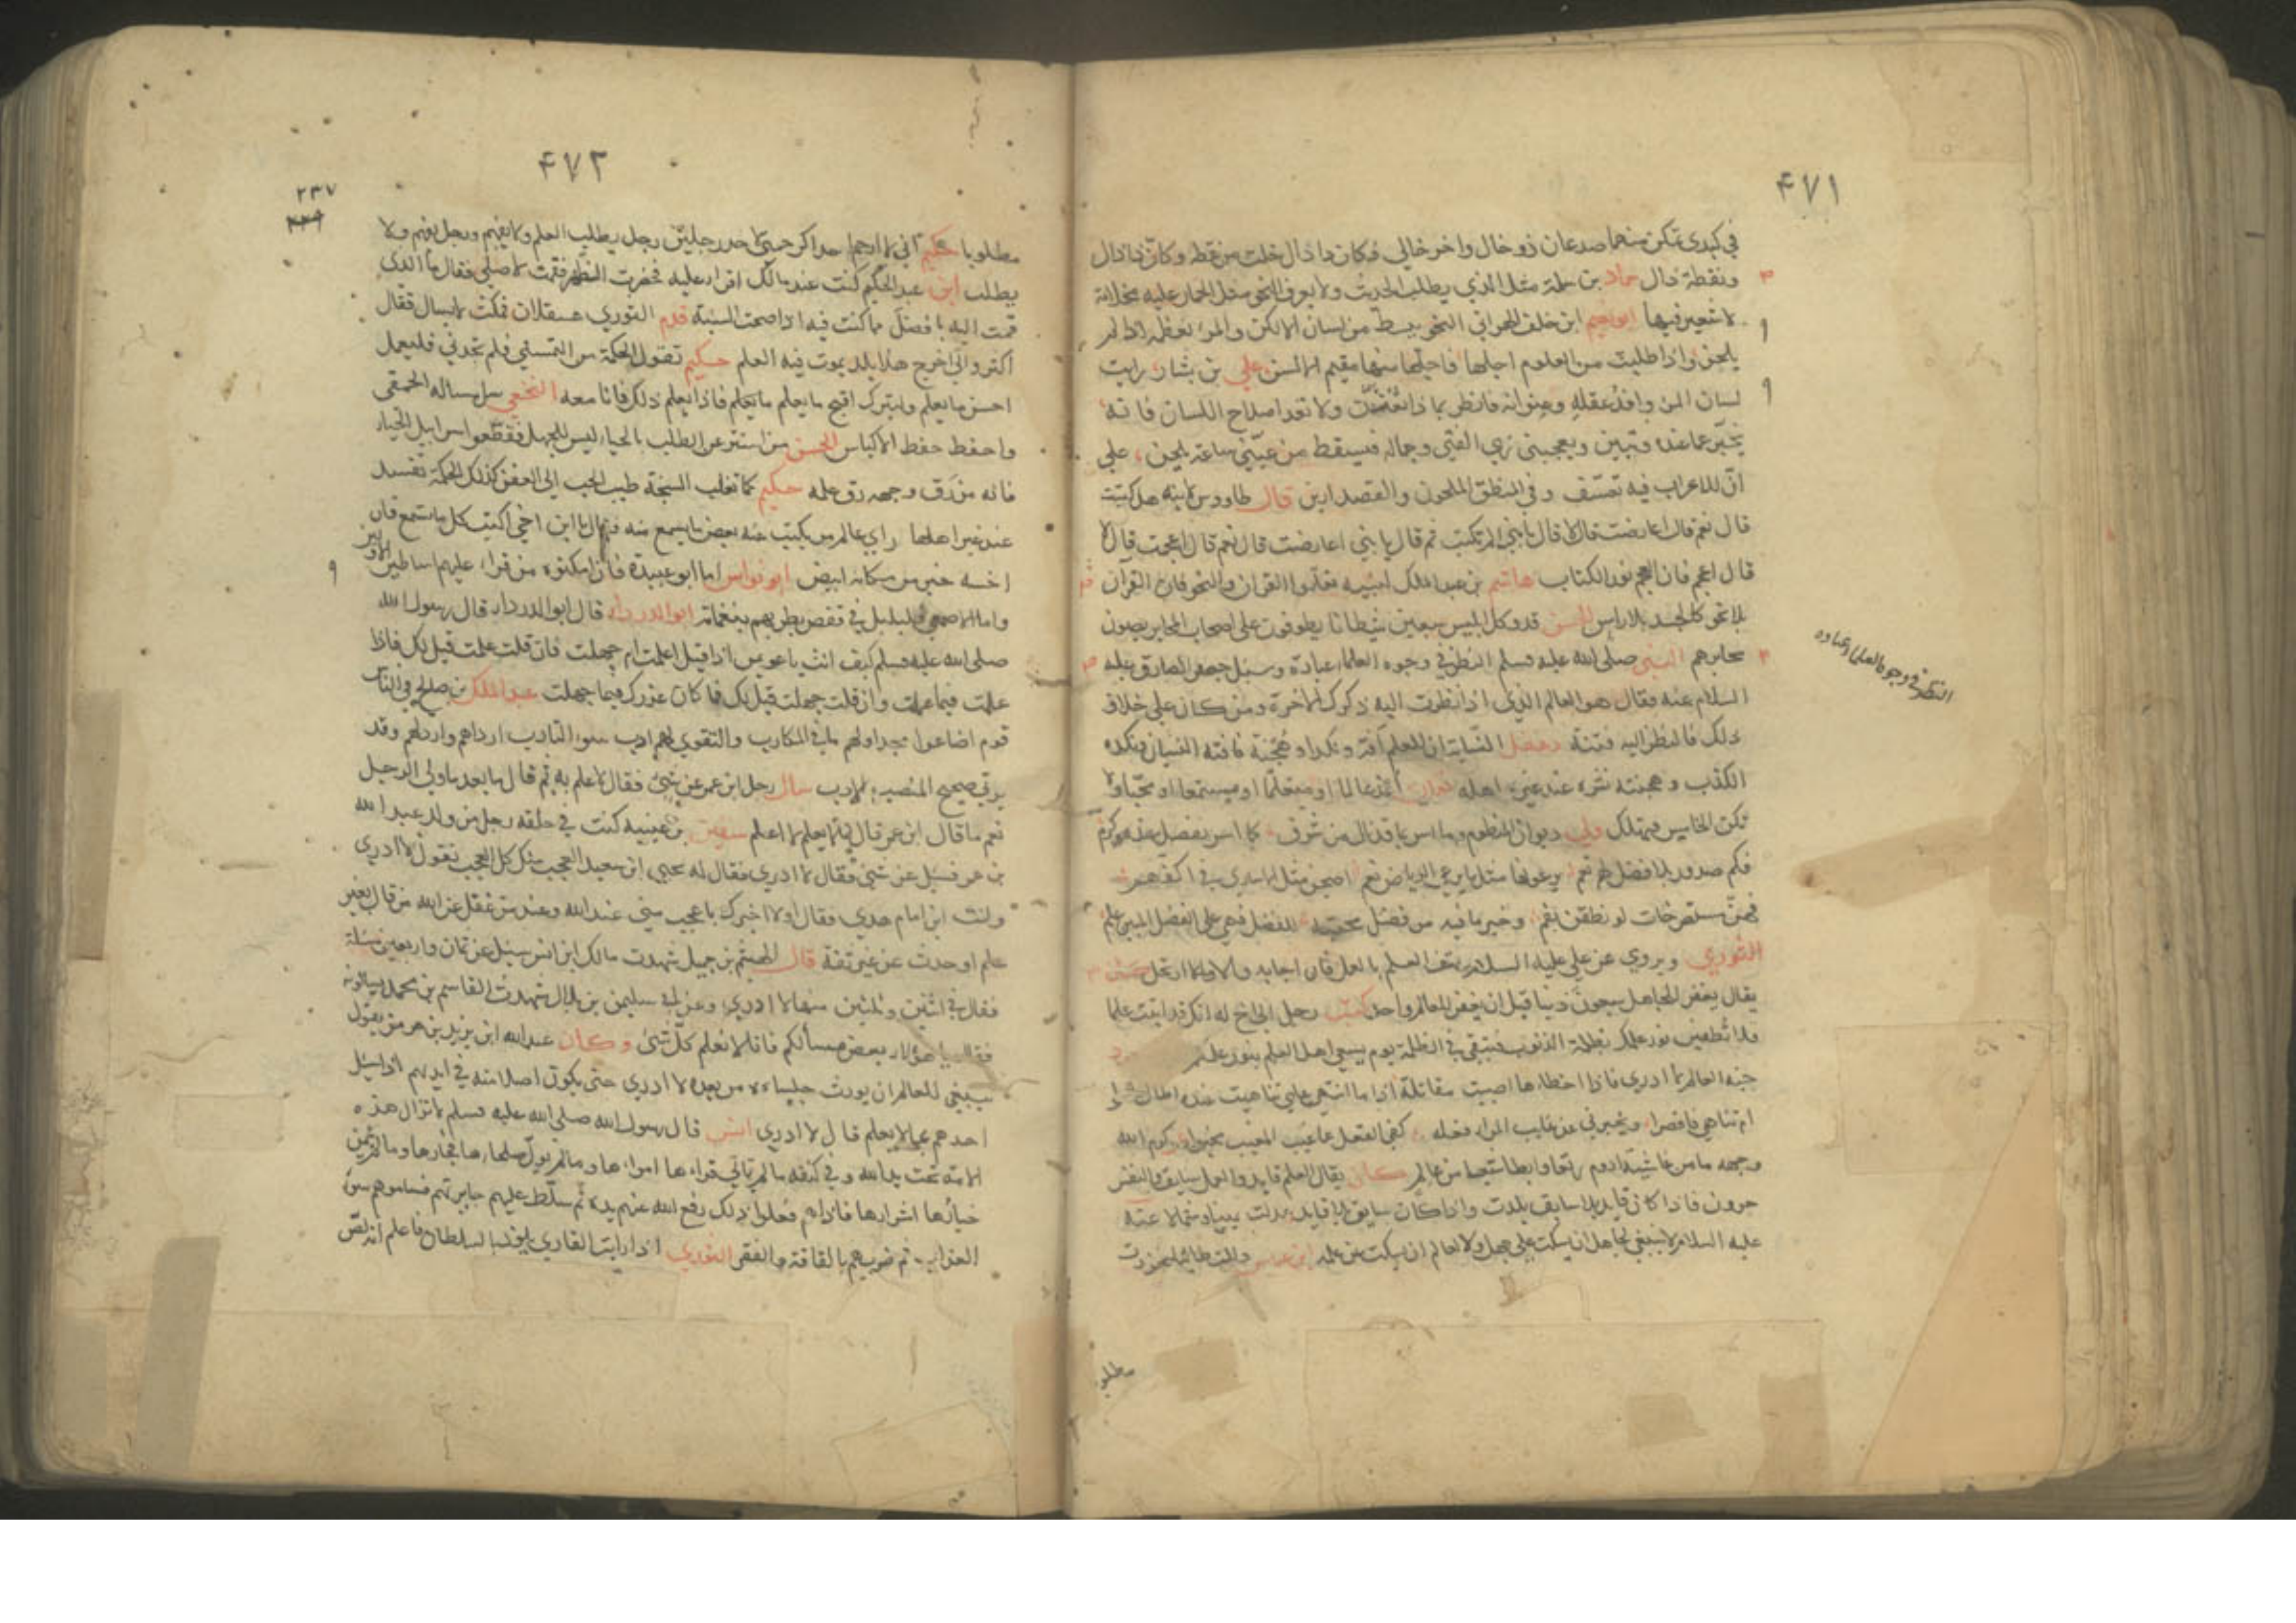 ۴۷۱
في كبدي تمكن منهما صدغان ذو خال واخر خالي فكان ذا ذال خلت من نقطة وكان ذا دال
ونقطة ذال حماد بن سلمة مثل الذي يطلب الحديث ولا يعرف النحو مثل الحمار عليه مخلاة
لا شعير فيها ابراهيم ابن خلف البهراني النحو يبسط من لسان الالكن والمرء تعظمه اذا لم
يلحن واذا طلبت من العلوم اجلها فاجلها منها مقيم الالسن علي بن بشار رايت
لسان المرء وافد عقله وعنوانه فانظر بما ذا تعنون ولا تعد اصلاح اللسان فانه
يخبر عما عنده ويبين ويعجبني زي الفتى وجماله فيسقط من عيني ساعة يلحن على
ان للاعراب فيه تعسف وفي المنطق الملحون والقصد ابين قال طاووس لابنه هل كتبت
قال نعم قال اعارضت قال لا قال يا بني لم تكتب ثم قال يا بني اعارضت قال نعم قال اعجمت قال لا
قال اعجم فان العجم نور الكتاب هاشم بن عبد الملك لبنيه تعلموا القران والنحو فان القران
بلا نحو كالجسد بلا راس الحسن قد وكل ابليس سبعين شيطانا يطوفون على اصحاب المحابر يصون
محابرهم النبي صلى الله عليه وسلم النظر في وجوه العلماء عبادة وسئل جعفر الصادق عليه
السلام عنه فقال هو العالم الذي اذا نظرت اليه ذكرك الاخرة ومن كان على خلاف
ذلك فالنظر اليه فتنة دغفل النسابة ان للعلم آفة ونكدا وهجنة فافته النسيان ونكده
الكذب وهجنته نشره عند غير اهله لقمان اغد عالما او متعلما او مستمعا او محبا ولا
تكن الخامس فتهلك ديوان المنظوم وما اس ما قد نال من شرف كا اس يفضل عنده وكرم
فكم صدور
فهن مستصرخات لو نطقن لقم وخير ما فيه من فضل
الثوري ويروى عن علي عليه السلام يهتف العلم بالعمل فان اجابه والا ارتحل
يقال يغفر للجاهل سبعون ذنبا قبل ان يغفر للعالم واحد كتب رجل الى اخ له انك قد اتيت علما
فلا تطفين نور علمك بظلمة الذنوب فتبقى في الظلمة يوم يسعى اهل العلم بنور علمهم
جنة العالم لا ادري فاذا اخطاها اصيبت مقاتله اذا ما انتهى علمي تناهيت عنده اطال
ام تناهى فاقصرا ويخبرني عن غايب المرء فعله كفى الفعل عما غيب المرء مخبرا كرم الله
وجهه ما من
حرون فاذا كان قايد بلا سايق بلدت واذا كان سايق بلا قايد عدلت يمينا وشمالا عنه
عليه السلام لا ينبغي لجاهل ان يسكت على جهله ولا لعالم ان يسكت عن علمه ابن عباس ذللت طالبا فعززت
النظر في وجوه العلماء عبادة
مطلو
۴۷۲
۲۳۷
مطلوبا حكيم اني لا ارحم احدا كرحمتي لاحد رجلين رجل يطلب العلم ولا يفهم ورجل يفهم ولا
يطلب ابن عبد الحكيم كنت عند مالك اقرا عليه فحضرت الظهر فقمت لاصلي فقال ما الذي
قمت اليه بافضل مما كنت فيه اذا صحت النية قدم الثوري عسقلان فمكث لا يسال فقال
اكتروا لي اخرج هذا بلد يموت فيه العلم حكيم تقول الحكمة من التمسني فلم يجدني فليعمل
احسن ما يعلم وليترك اقبح ما يعلم فاذا فعل ذلك فانا معه النخعي سل مسالة الحمقى
واحفظ حفظ الاكياس الحسن من استتر عن الطلب بالحياء لبس للجهل فقطعوا سرابيل الحياء
فانه من رق وجهه رق علمه حكيم كما تغلب السبخة طيب الحب الى العفن كذلك الحكمة تفسد
عند غير اهلها راى عالم من يكتب عنه بعض ما يسمع منه فقال يا ابن اخي اكتب كل ما تسمع فان
اخسه خير من مكانه ابيض ابو نواس اما ابو عبيدة فان امكنوه من قراء عليهم اساطير الاولين
واما الاصمعي فبلبل في قفص يطربهم بنغماته ابو الدرداء قال ابو الدرداء قال رسول الله
صلى الله عليه وسلم كيف انت يا عويمر اذا قيل اعلمت ام جهلت فان قلت علمت قيل لك فماذا
عملت فيما علمت وان قلت جهلت قيل لك فما كان عذرك فيما جهلت عبد الملك بن صالح في الناس
قوم اضاعوا مجد اولهم ما في المكارم والتقوى لهم ارب سوء التادب ارداهم وارذلهم وقد
يرقى صحيح المنصب الادب سال رجل ابن عمر عن شئ فقال لا علم به ثم قال ما بعد ما ولى الرجل
نعم ما قال ابن عمر قال لما لا يعلم لا اعلم سفين بن عيينه كنت في حلقه رجل من ولد عبد الله
بن عمر فسئل عن شئ فقال لا ادري فقال له يحيى ابن سعيد العجب منك كل العجب تقول لا ادري
وانت ابن امام هدى فقال اولا اخبرك باعجب مني عند الله وعند من عقل عن الله من قال بغير
علم او حدث عن غير ثقة قال الهيثم بن جميل شهدت مالك ابن انس سئل عن ثمان واربعين مسئلة
فقال في اثنين وثلثين منها لا ادري وعن سليمن بن بلال شهدت القاسم بن محمد يسالونه
فقال يا هؤلاء بعض مسائلكم فانا لا نعلم كل شئ وكان عبد الله ابن يزيد بن هرمز يقول
ينبغي للعالم ان يورث جلساءه من بعده لا ادري حتى يكون اصلا منه في ايديهم اذا سئل
احدهم عما لا يعلم قال لا ادري انس قال رسول الله صلى الله عليه وسلم لا تزال هذه
الامة تحت يد الله وفي كنفه ما لم تمالي قراءها امراءها وما لم يزك صلحاءها فجارها وما لم
خيارها اشرارها فاذا هم فعلوا ذلك رفع الله عنهم يده ثم سلط عليهم جبابرتهم فساموهم سوء
العذاب ثم ضربهم بالفاقة والفقر الثوري اذا رايت القاري يلوذ بالسلطان فاعلم انه لص